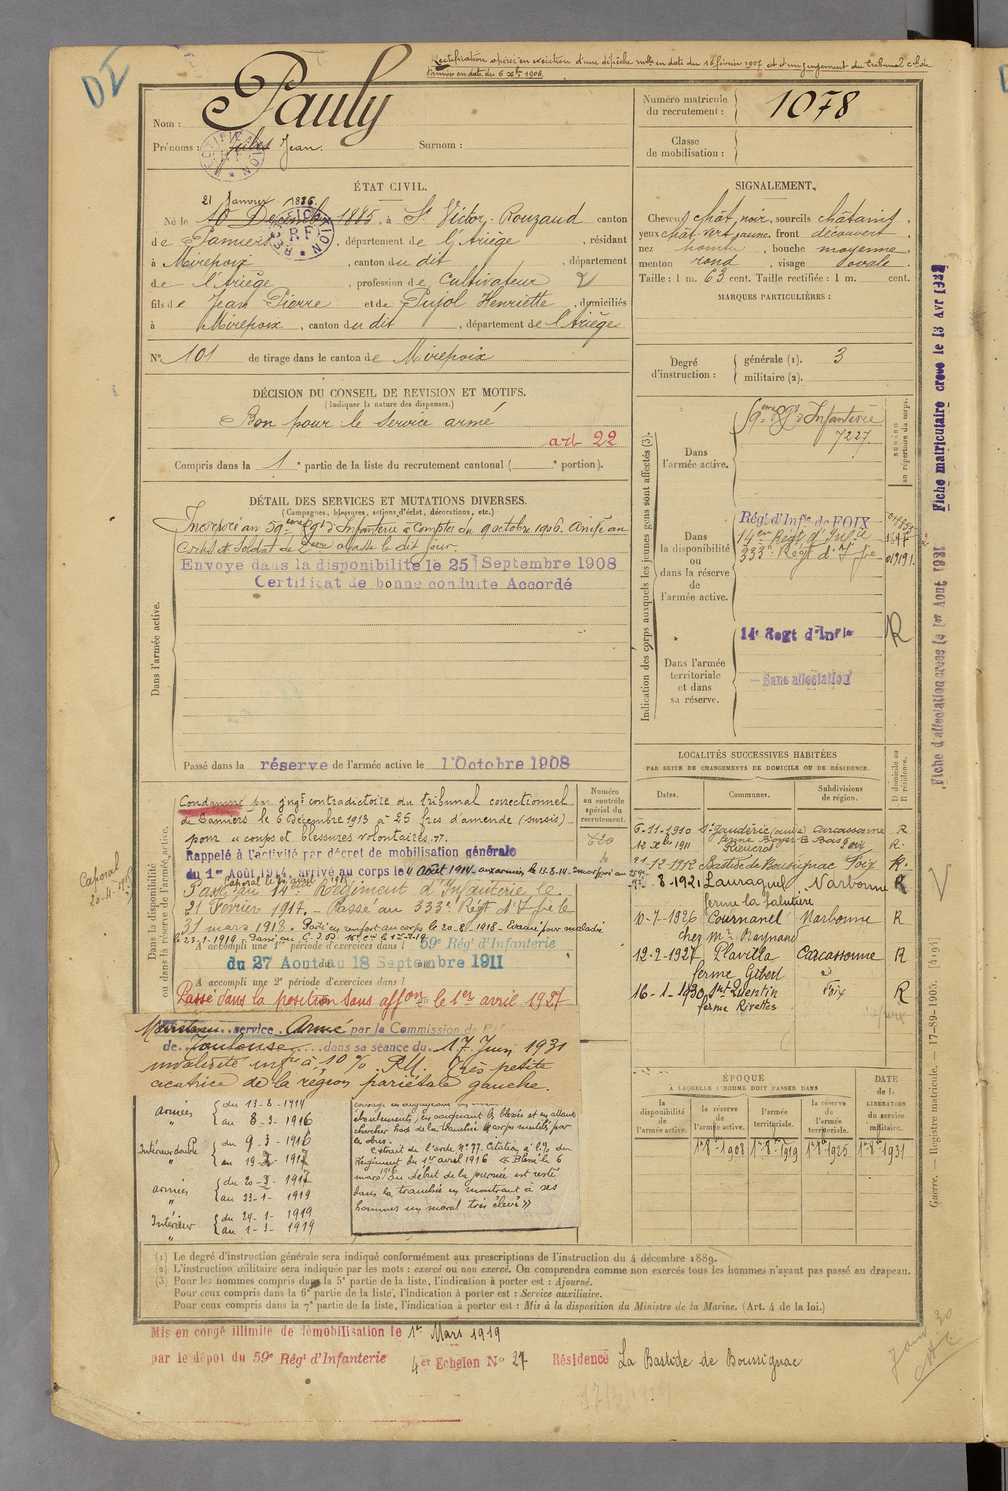 DI
Rectification opérée en exécution d'une dépêche mlle en date du 16 février 1907 et d'un jugement du tribunal civil de
Pamiers en date du 6 Xbre 1906.
Nom : Pauly
Prénoms : Jules Jean. Surnom :
Numéro matricule du recrutement : 1078
Classe de mobilisation :
ÉTAT CIVIL.
21 Janvier 1886
Né le 10 Décembre 1885, à St Victor-Rouzaud canton
de Pamiers, département de l'Ariège, résidant
à Mirepoix, canton du dit, département
de l'Ariège, profession de Cultivateur
fils de Jean Pierre et de Pujol Henriette, domiciliés
à Mirepoix, canton du dit, département de l'Ariège
N° 101 de tirage dans le canton de Mirepoix
SIGNALEMENT.
Cheveux chât. noir, sourcils châtains,
yeux chât. vert jaune, front découvert,
nez , bouche moyenne
menton rond, visage ovale.
Taille : 1 m. 63 cent. Taille rectifiée : 1 m. cent.
MARQUES PARTICULIÈRES :
Degré d'instruction :
générale (1). 3
militaire (2).
DÉCISION DU CONSEIL DE REVISION ET MOTIFS.
(Indiquer la nature des dispenses.)
Bon pour le service armé
art 22
Compris dans la 1e partie de la liste du recrutement cantonal ( e portion).
DÉTAIL DES SERVICES ET MUTATIONS DIVERSES.
(Campagnes, blessures, actions d'éclat, décorations, etc.)
Dans l'armée active.
Incorporé au 59eme Régt d'Infanterie à compter du 9 octobre 1906. Arrivé au
Corps et Soldat de 2eme classe le dit jour.
Envoyé dans la disponibilité le 25 Septembre 1908
Certificat de bonne conduite Accordé
Passé dans la réserve de l'armée active le 1er Octobre 1908
Indication des corps auxquels les jeunes gens sont affectés (3).
NUMÉRO au répertoire du corps.
Dans l'armée active.
59eme Rgt d'Infanterie
7227
Dans la disponibilité ou dans la réserve de l'armée active.
Régt d'Infie de FOIX
14em Régt d'Infie
333e Régt d'Infie
Dans l'armée territoriale et dans sa réserve.
14e Regt d'Infie
R
Sans affectation
Fiche matriculaire créée le 13 Avr 1922
Fiche d'affectation créée le 1er Aout 1931
Dans la disponibilité ou dans la réserve de l'armée active.
Numéro au contrôle spécial du recrutement.
Condamné par jugt contradictoire du tribunal correctionnel
de Pamiers le 6 Décembre 1913 à 25 frs d'amende (sursis)
pour « coups et blessures volontaires ».
Rappelé à l'activité par décret de mobilisation générale
du 1er Août 1914, arrivé au corps le 4 Août 1914.
Caporal
Passé au 14e Régiment d'Infanterie le
21 Février 1917. – Passé au 333e Régt d'Infie le
31 mars 1918.
A accompli une 1re période d'exercices dans l 59e Régt d'Infanterie
du 27 Aout au 18 Septembre 1911
A accompli une 2e période d'exercices dans l
Passé dans la position sans affon le 1er avril 1927
Maintenu service Armé par la Commission de
de Toulouse dans sa séance du 17 Juin 1931
invalidité infre à 10 % P.M. Très petite
cicatrice de la région pariétale gauche.
Armées { du 13-8-1914
" { au 8-3-1916
Intérieur { du 9-3-1916
" { au 19-2-1917
Armées { du 20-2-1917
" { au 23-1-1919
Intérieur { du 24-1-1919
" { au 1-3-1919
éboulements, en soignant les blessés et en allant
chercher hors de la tranchée les corps mutilés par
les obus.
Extrait de l'ordre N° 77. Citation à l'O. du
Régiment du 1er avril 1916 « Blessé le 6
mars 1916 au début de la journée est resté
dans la tranchée en montrant à ses
hommes un moral très élevé »
LOCALITÉS SUCCESSIVES HABITÉES
PAR SUITE DE CHANGEMENTS DE DOMICILE OU DE RÉSIDENCE.
Dates. Communes. Subdivisions de région. D domicile ou R résidence.
6-11-1910 St Gaudéric (aude) Carcassonne R
12 Xbre 1911 Rieucros Foix R.
21-12-1912 Bastide de Bousignac Foix R.
8-1921 Lauraguel Narbonne R
ferme la
10-7-1926 Cournanel Narbonne R
chez Mr Raynaud
12-2-1927 Plavilla Carcassonne R
ferme Gibert
16-1-1930 St Quentin Foix R
ferme Rivettes
ÉPOQUE
À LAQUELLE L'HOMME DOIT PASSER DANS
la disponibilité de l'armée active.
la réserve de l'armée active.
l'armée territoriale.
la réserve de l'armée territoriale.
DATE de la LIBÉRATION du service militaire.
1er 8bre 1908 1er 8bre 1919 1er 8bre 1925 1er 8bre 1931
Guerre. — Registre matricule. — 17-89-1905. [4194]
(1) Le degré d'instruction générale sera indiqué conformément aux prescriptions de l'instruction du 4 décembre 1889.
(2) L'instruction militaire sera indiquée par les mots : exercé ou non exercé. On comprendra comme non exercés tous les hommes n'ayant pas passé au drapeau.
(3) Pour les hommes compris dans la 5e partie de la liste, l'indication à porter est : Ajourné.
Pour ceux compris dans la 6e partie de la liste, l'indication à porter est : Service auxiliaire.
Pour ceux compris dans la 7e partie de la liste, l'indication à porter est : Mis à la disposition du Ministre de la Marine. (Art. 4 de la loi.)
Mis en congé illimité de démobilisation le 1er Mars 1919
par le dépôt du 59e Régt d'Infanterie 4e Echelon N° 27 Résidence La Bastide de Boussignac